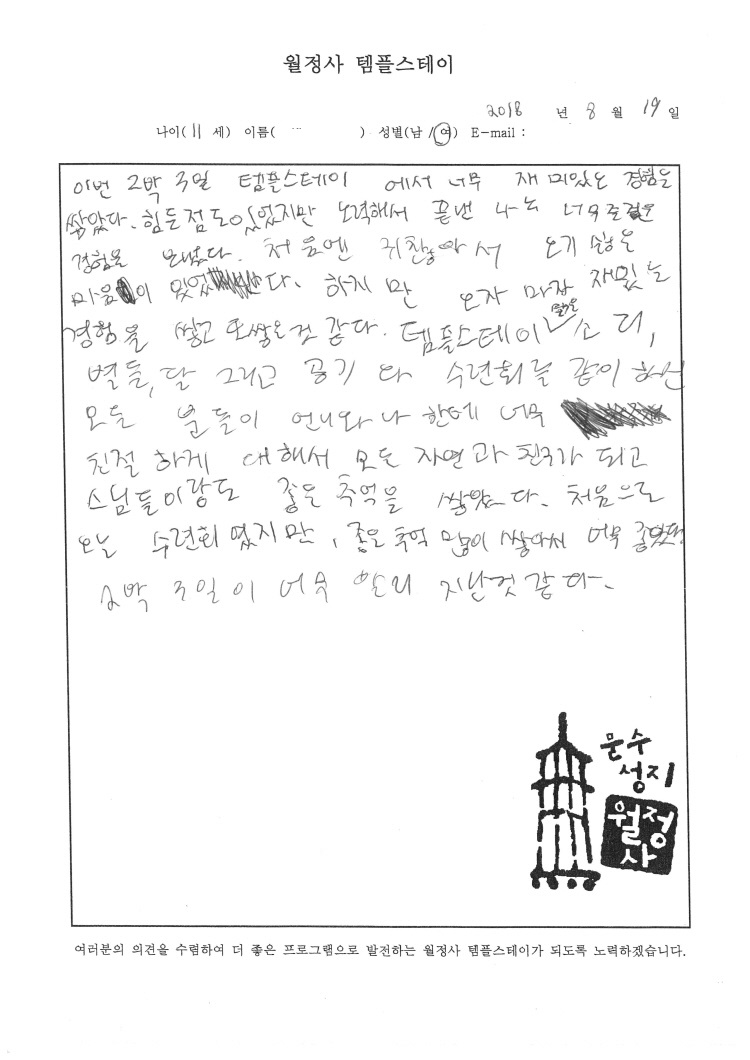 월정사 템플스테이
2018 년 8 월 19 일
나이( 11 세) 이름( ) 성별(남 / 여) E-mail :
이번 2박 3일 템플스테이 에서 너무 재미있는 경험을
쌓았다. 힘든점도 있었지만 노력해서 끝낸 나는 너무 즐거운
경험을 보냈다. 처음엔 귀찮아서 오기 싫은
마음이 있었다. 하지만 오자 마자 재밌는
경험을 쌓고 또 쌓은것 같다. 템플스테이 맑은 소리,
별들, 달 그리고 공기 와 수련회를 같이 하신
모든 분들이 언니와 나 한테 너무
친절 하게 대해서 모든 자연과 친구가 되고
스님들이랑도 좋은 추억을 쌓았다. 처음으로
오늘 수련회였지만, 좋은 추억 많이 쌓아서 너무 좋았다.
2박 3일이 너무 빨리 지난것 같다.
문수
성지
월정
사
여러분의 의견을 수렴하여 더 좋은 프로그램으로 발전하는 월정사 템플스테이가 되도록 노력하겠습니다.